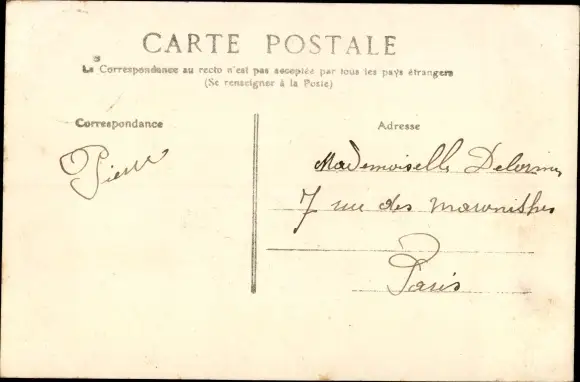 CARTE POSTALE
La Correspondance au recto n'est pas acceptée par tous les pays étrangers
(Se renseigner à la Poste)
Correspondance
Adresse
Pierre
Mademoiselle Delorme
7 rue des Maronithes
Paris